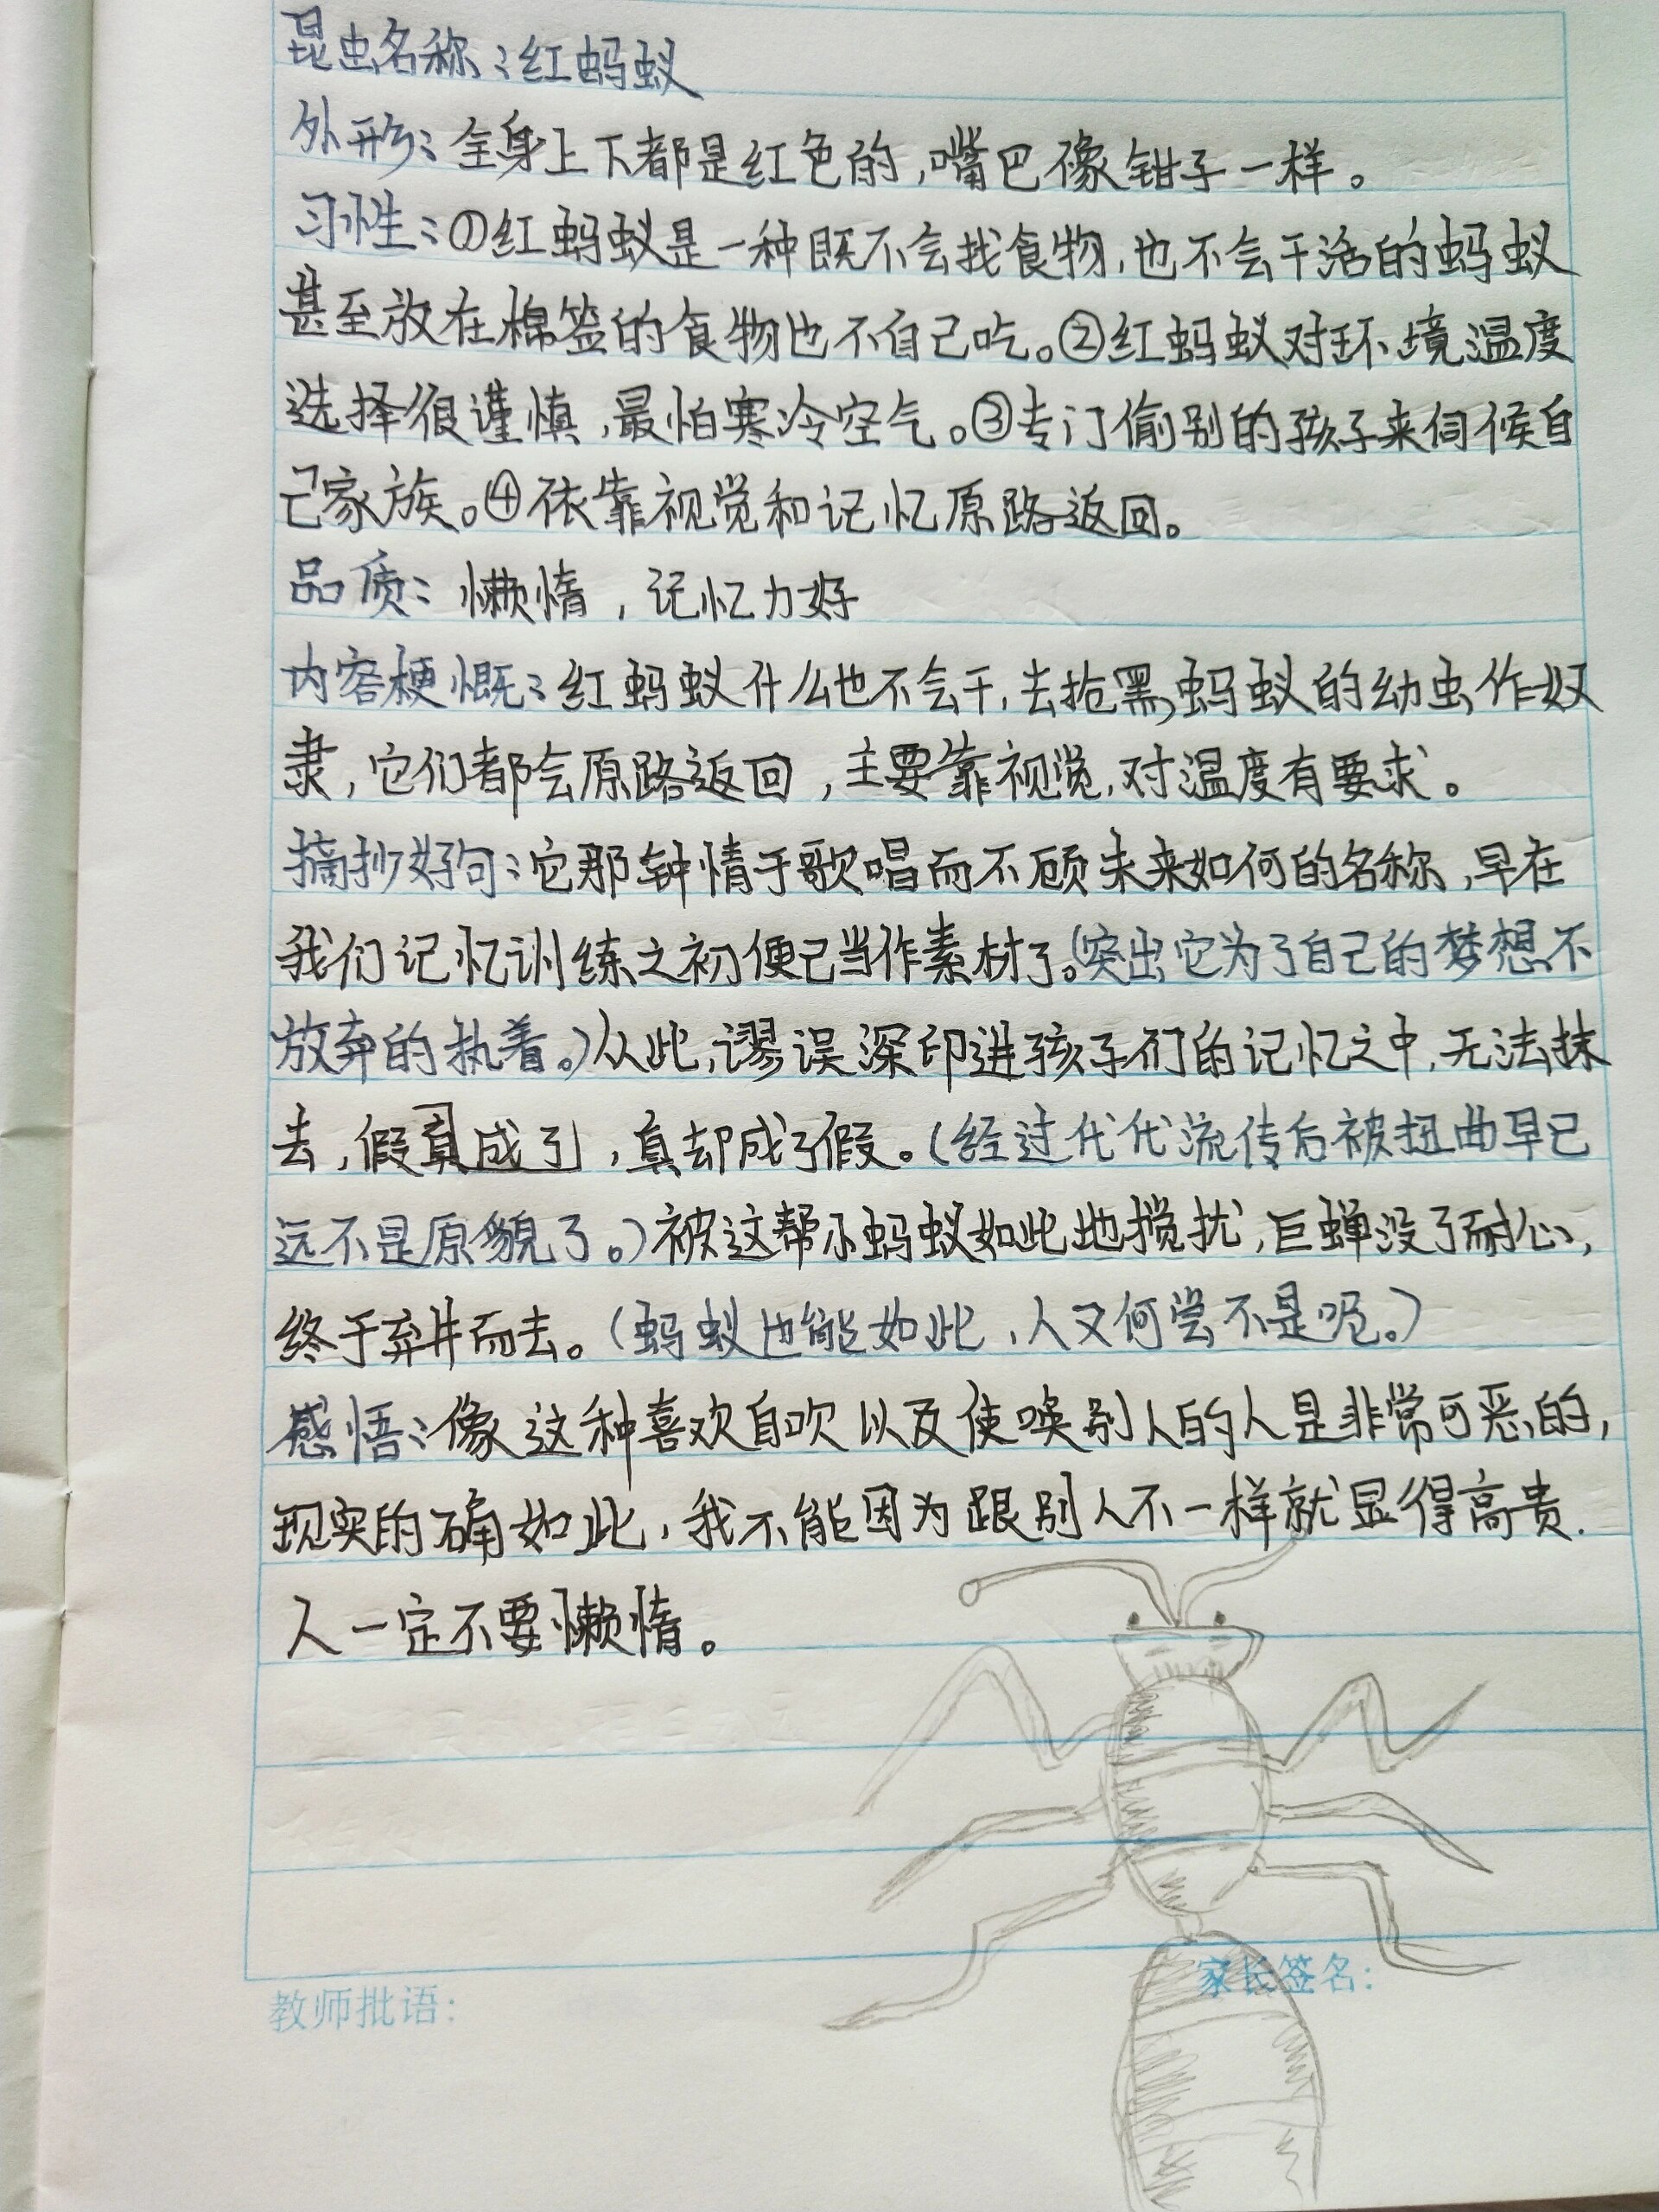 昆虫名称：红蚂蚁
外形：全身上下都是红色的，嘴巴像钳子一样。
习性：①红蚂蚁是一种既不会找食物，也不会干活的蚂蚁
甚至放在棉签的食物也不自己吃。②红蚂蚁对环境温度
选择很谨慎，最怕寒冷空气。③专门偷别的孩子来伺候自
己家族。④依靠视觉和记忆原路返回。
品质：懒惰，记忆力好
内容梗慨：红蚂蚁什么也不会干，去抢黑蚂蚁的幼虫作奴
隶，它们都会原路返回，主要靠视觉，对温度有要求。
摘抄好句：它那钟情于歌唱而不顾未来如何的名称，早在
我们记忆训练之初便已当作素材了。（突出它为了自己的梦想不
放弃的执着。）从此，谬误深印进孩子们的记忆之中，无法抹
去，假真成了，真却成了假。（经过代代流传后被扭曲早已
远不是原貌了。）被这帮小蚂蚁如此地搅扰，巨蝉没了耐心，
终于弃井而去。（蚂蚁也能如此，人又何尝不是呢。）
感悟：像这种喜欢自吹以及使唤别人的人是非常可恶的，
现实的确如此，我不能因为跟别人不一样就显得高贵.
人一定不要懒惰。
教师批语：
家长签名：